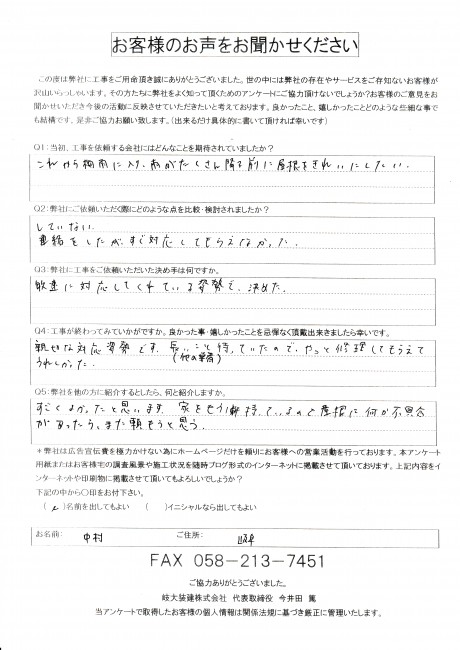 お客様のお声をお聞かせください
この度は弊社に工事をご用命頂き誠にありがとうございました。世の中には弊社の存在やサービスをご存知ないお客様が
沢山いらっしゃいます。その方たちに弊社をよく知って頂くためのアンケートにご協力頂けないでしょうか?お客様のご意見をお
聞かせいただき今後の活動に反映させていただきたいと考えております。良かったこと、嬉しかったことどのような些細な事で
も結構です。是非ご協力お願い致します。(出来るだけ具体的に書いて頂ければ幸いです)
Q1:当初、工事を依頼する会社にはどんなことを期待されていましたか?
これから梅雨に入り、雨がたくさん降る前に屋根をきれいにしたい.
Q2:弊社にご依頼いただく際にどのような点を比較・検討されましたか?
していない.
連絡をしたが、すぐ対応してもらえなかった.
Q3:弊社に工事をご依頼いただいた決め手は何ですか。
敏速に対応してくれている姿勢で、決めた.
Q4:工事が終わってみていかがですか。良かった事・嬉しかったことを忌憚なく頂戴出来きましたら幸いです。
親切な対応姿勢です. 長いこと待っていたので、やっと修理してもらえて
(他の業者)
うれしかった.
Q5:弊社を他の方に紹介するとしたら、何と紹介しますか。
すごくよかったと思います. 家をもう1軒持っているので屋根に何か不具合
があったら、また頼もうと思う.
*弊社は広告宣伝費を極力かけない為にホームページだけを頼りにお客様への営業活動を行っております。本アンケート
用紙またはお客様宅の調査風景や施工状況を随時ブログ形式のインターネットに掲載させて頂いております。上記内容をイ
ンターネットや印刷物に掲載させて頂いてもよろしいでしょうか?
下記の中から○印をお付下さい。
( )名前を出してもよい ( )イニシャルなら出してもよい
お名前: 中村 ご住所: 岐阜
FAX 058-213-7451
ご協力ありがとうございました。
岐大装建株式会社 代表取締役 今井田 篤
当アンケートで取得したお客様の個人情報は関係法規に基づき厳正に管理いたします。